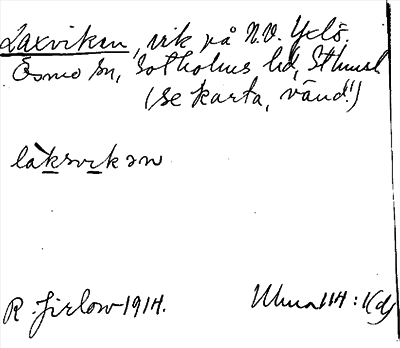 Laxviken, vik på N.V. Yxlö.
Ösmo sn, Sotholms hd, Sthmsl
(se karta, vänd!)
làksvikən
R. Jirlow 1914.